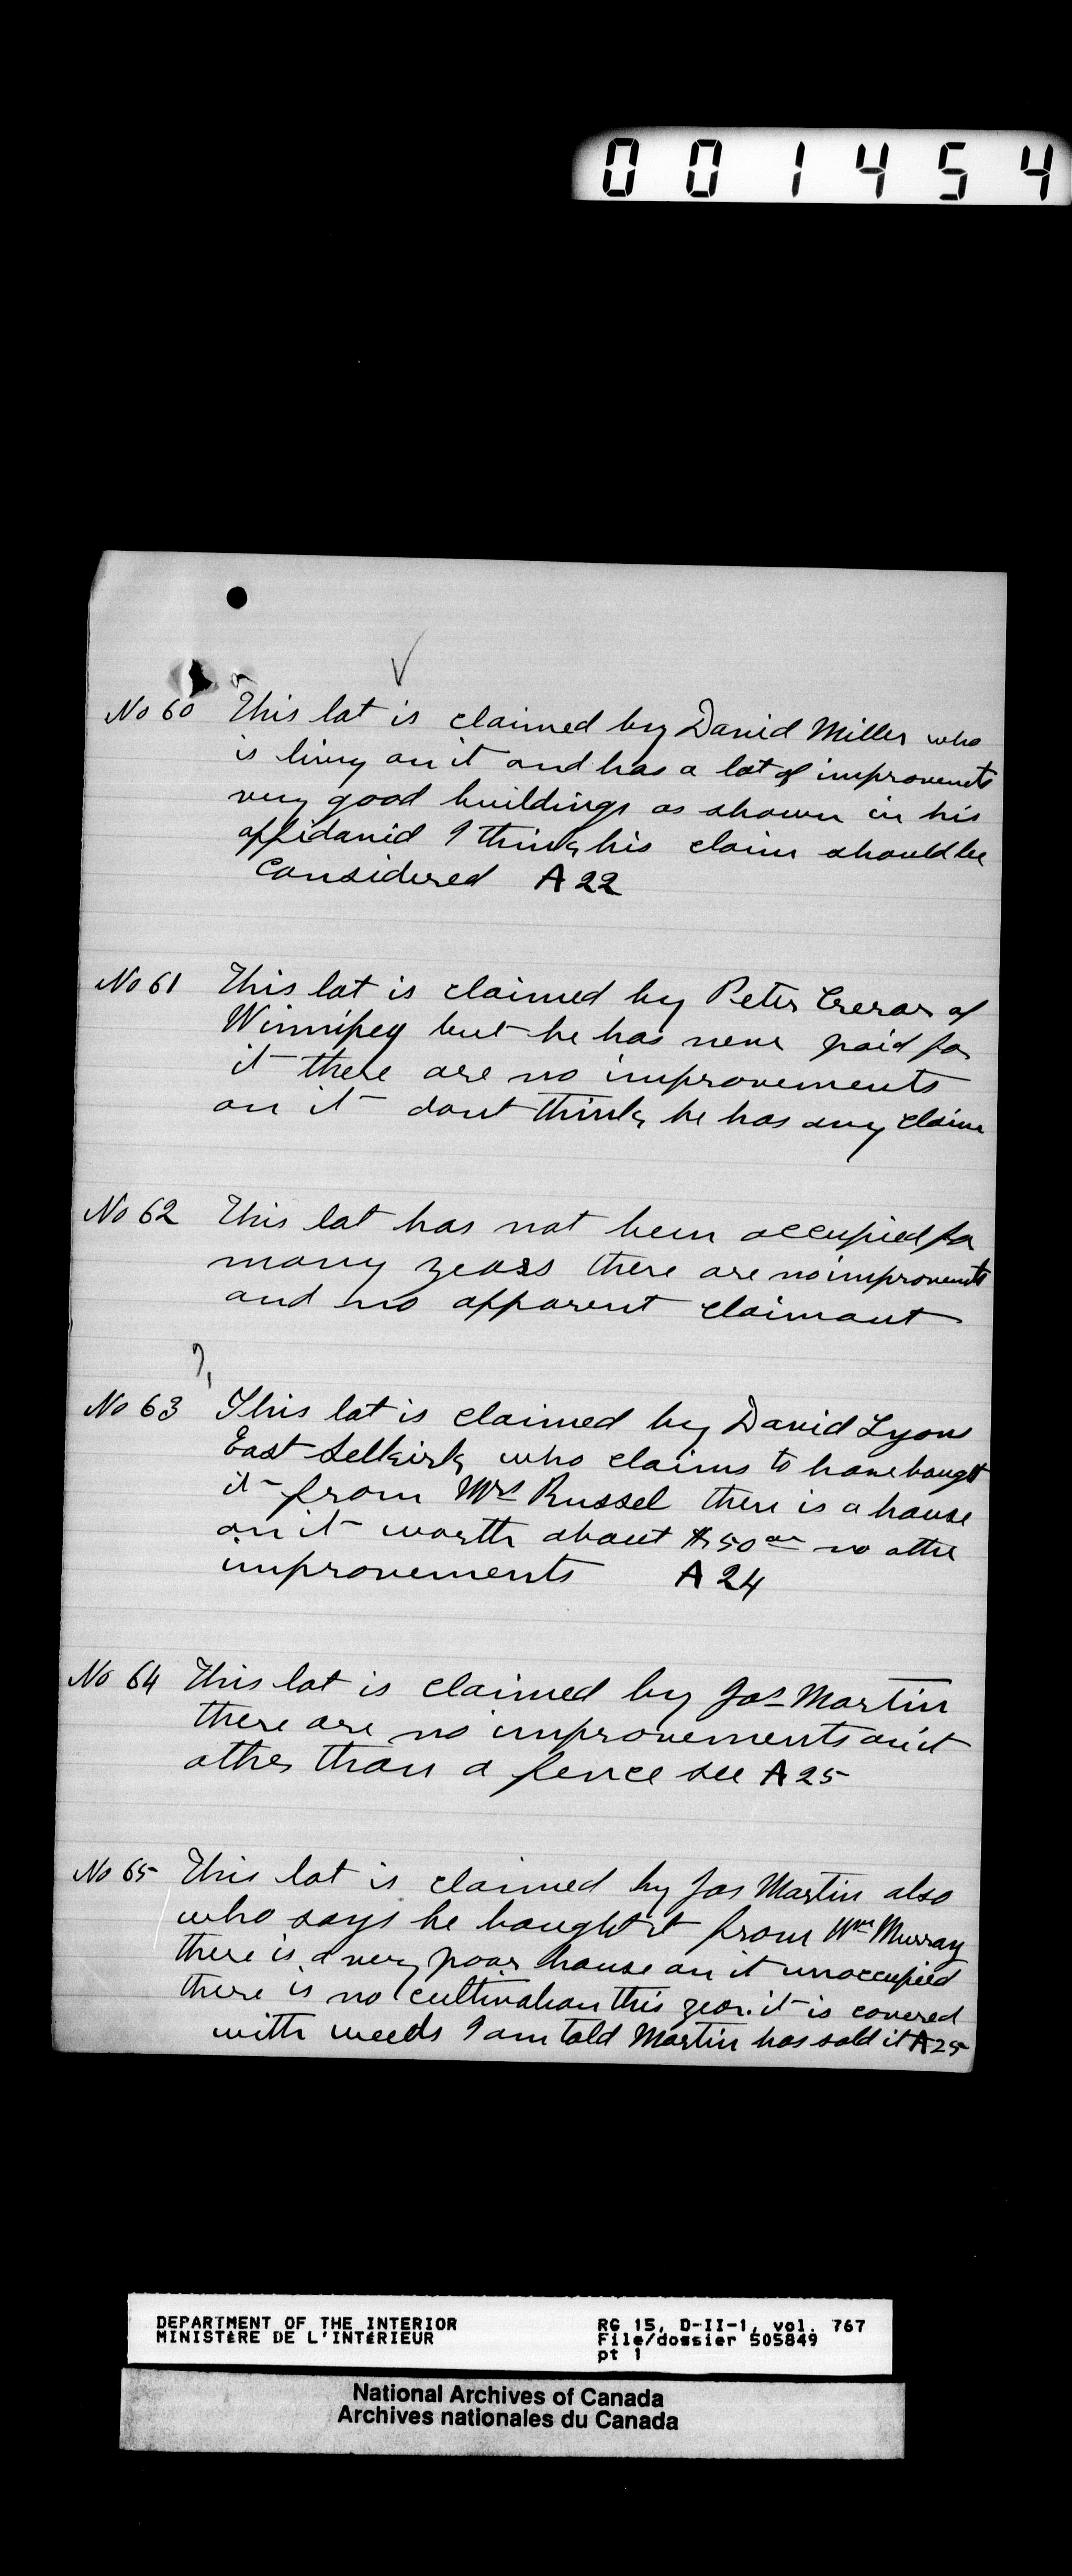 001454
No 60 This lot is claimed by David Miller who
is living on it and has a lot of improvements
very good buildings as shown in his
affidavid I think his claim should be
Considered A 22
No 61 This lot is claimed by Peter Crerar of
Winnipeg but he has never paid for
it there are no improvements
on it dont think he has any claim
No 62 This lot has not been occupied for
many years there are no improvements
and no apparent claimant
?
No 63 This lot is claimed by David Lyons
East Selkirk who claims to have bought
it from Mrs Russel there is a house
on it worth about $50 00 no other
improvements A 24
No 64 This lot is claimed by Jas Martin
there are no improvements on it
other than a fence see A 25
No 65 This lot is claimed by Jas Martin also
who says he bought it from Wm Murray
there is a very poor house on it unoccupied
there is no cultivation this year. it is covered
with weeds I am told Martin has sold it A 25
DEPARTMENT OF THE INTERIOR
MINISTÈRE DE L'INTÉRIEUR
RG 15, D-II-1, vol. 767
File/dossier 505849
pt 1
National Archives of Canada
Archives nationales du Canada